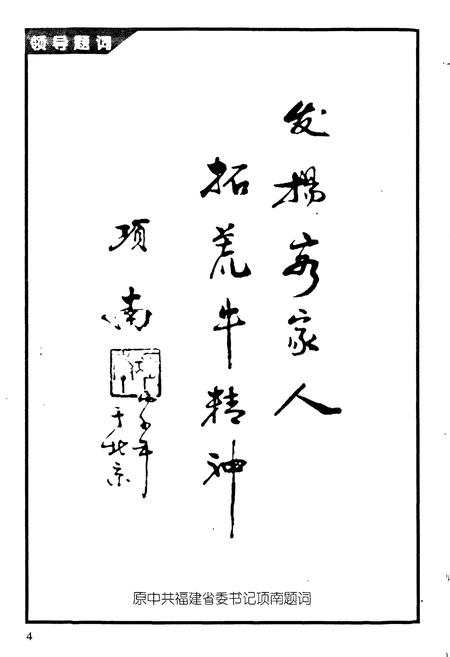 领导题词
发扬客家人
拓荒牛精神
项南
丙子年
于北京
原中共福建省委书记项南题词
4